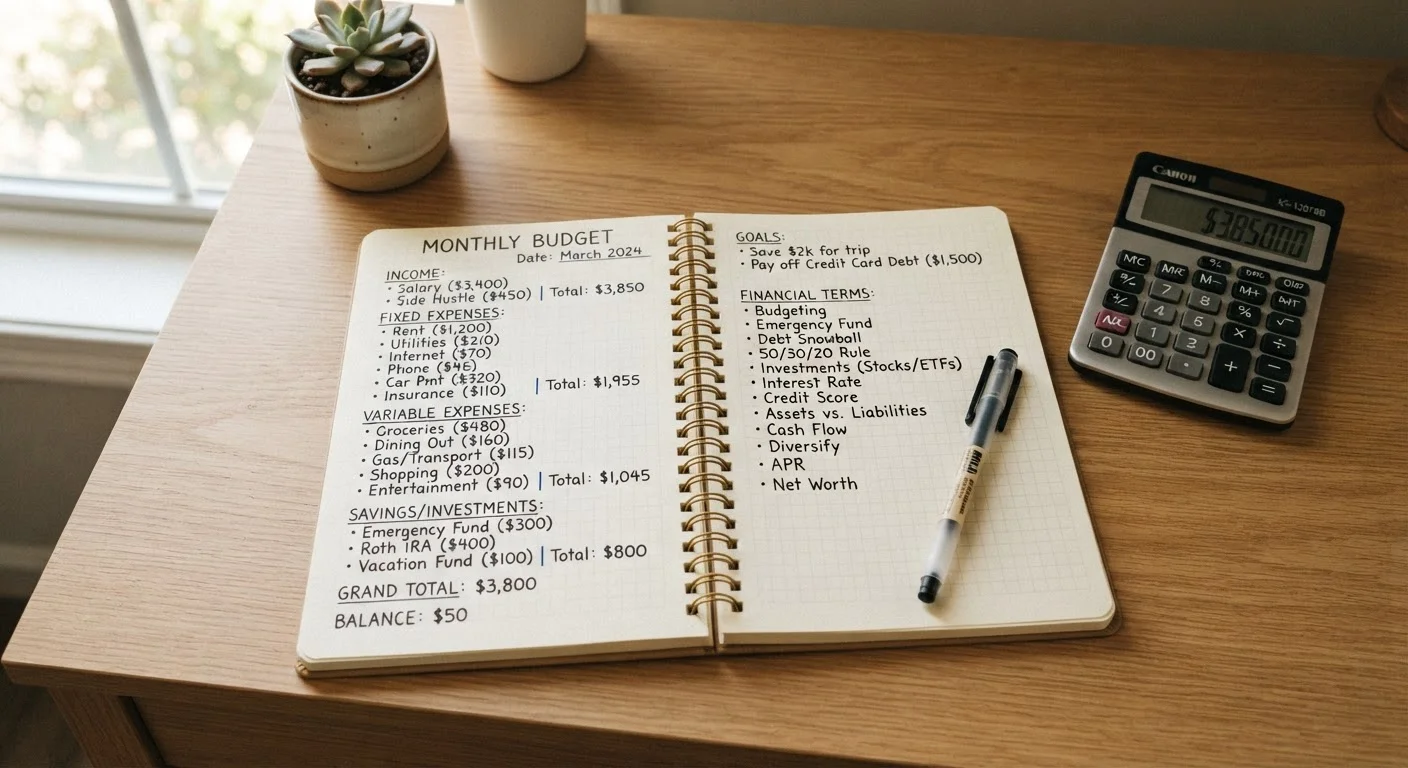 MONTHLY BUDGET
Date: March 2024
INCOME:
• Salary ($3,400)
• Side Hustle ($450) | Total: $3,850
FIXED EXPENSES:
• Rent ($1,200)
• Utilities ($210)
• Internet ($70)
• Phone
• Car Pmt ($320)
• Insurance ($110) | Total: $1,955
VARIABLE EXPENSES:
• Groceries ($480)
• Dining Out ($160)
• Gas/Transport ($115)
• Shopping ($200)
• Entertainment ($90) | Total: $1,045
SAVINGS/INVESTMENTS:
• Emergency Fund ($300)
• Roth IRA ($400)
• Vacation Fund ($100) | Total: $800
GRAND TOTAL: $3,800
BALANCE: $50
GOALS:
• Save $2k for trip
• Pay off Credit Card Debt ($1,500)
FINANCIAL TERMS:
• Budgeting
• Emergency Fund
• Debt Snowball
• 50/30/20 Rule
• Investments (Stocks/ETFs)
• Interest Rate
• Credit Score
• Assets vs. Liabilities
• Cash Flow
• Diversify
• APR
• Net Worth
Canon
MC MR % M+
7 8 M- % √
4 5 × ÷
1 3 + =
0 00 .